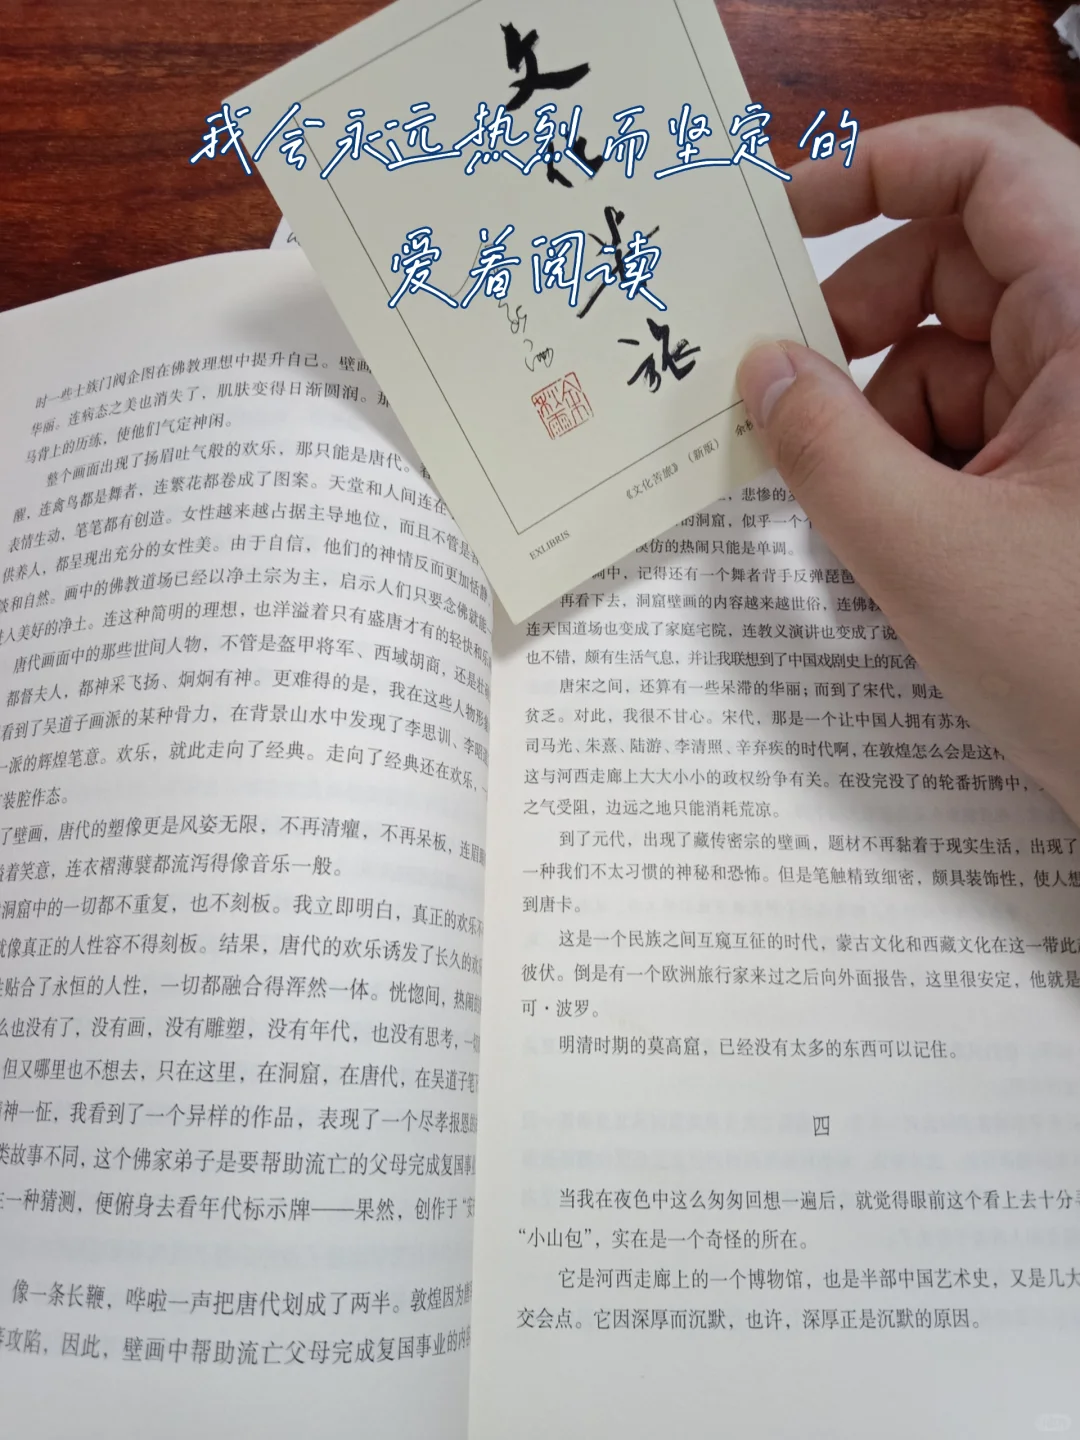 我会永远热烈而坚定的
爱着阅读
文化苦旅
余秋雨
《文化苦旅》（新版） 余秋
EXLIBRIS
时一些士族门阀企图在佛教理想中提升自己。壁画
华丽。连病态之美也消失了，肌肤变得日渐圆润。那
马背上的历练，使他们气定神闲。
整个画面出现了扬眉吐气般的欢乐，那只能是唐代。
醒，连禽鸟都是舞者，连繁花都卷成了图案。天堂和人间连在
表情生动、笔笔都有创造。女性越来越占据主导地位，而且不管是
供养人，都呈现出充分的女性美。由于自信，他们的神情反而更加恬静、
淡和自然。画中的佛教道场已经以净土宗为主，启示人们只要念佛就能一
进入美好的净土。连这种简明的理想，也洋溢着只有盛唐才有的轻快和乐
唐代画面中的那些世间人物，不管是盔甲将军、西域胡商，还是壮
都督夫人，都神采飞扬、炯炯有神。更难得的是，我在这些人物形象
看到了吴道子画派的某种骨力，在背景山水中发现了李思训、李昭道
一派的辉煌笔意。欢乐，就此走向了经典。走向了经典还在欢乐，一
装腔作态。
了壁画，唐代的塑像更是风姿无限，不再清癯，不再呆板，连眉眼
着笑意，连衣褶薄襞都流泻得像音乐一般。
洞窟中的一切都不重复，也不刻板。我立即明白，真正的欢乐不
就像真正的人性容不得刻板。结果，唐代的欢乐诱发了长久的欢
贴合了永恒的人性，一切都融合得浑然一体。恍惚间，热闹的
么也没有了，没有画，没有雕塑，没有年代，也没有思考，一切
但又哪里也不想去，只在这里，在洞窟，在唐代，在吴道子笔下
精神一征，我看到了一个异样的作品，表现了一个尽孝报恩的
类故事不同，这个佛家弟子是要帮助流亡的父母完成复国事业
一种猜测，便俯身去看年代标示牌——果然，创作于“安
像一条长鞭，哗啦一声把唐代划成了两半。敦煌因为唐
攻陷，因此，壁画中帮助流亡父母完成复国事业的内容
，悲惨的
的洞窟，似乎一个个
模仿的热闹只能是单调。
洞中，记得还有一个舞者背手反弹琵琶
再看下去，洞窟壁画的内容越来越世俗，连佛教
连天国道场也变成了家庭宅院，连教义演讲也变成了说
也不错，颇有生活气息，并让我联想到了中国戏剧史上的瓦舍
唐宋之间，还算有一些呆滞的华丽；而到了宋代，则走
贫乏。对此，我很不甘心。宋代，那是一个让中国人拥有苏东
司马光、朱熹、陆游、李清照、辛弃疾的时代啊，在敦煌怎么会是这样
这与河西走廊上大大小小的政权纷争有关。在没完没了的轮番折腾中，
之气受阻，边远之地只能消耗荒凉。
到了元代，出现了藏传密宗的壁画，题材不再黏着于现实生活，出现了
一种我们不太习惯的神秘和恐怖。但是笔触精致细密，颇具装饰性，使人想
到唐卡。
这是一个民族之间互窥互征的时代，蒙古文化和西藏文化在这一带此起
彼伏。倒是有一个欧洲旅行家来过之后向外面报告，这里很安定，他就是
可·波罗。
明清时期的莫高窟，已经没有太多的东西可以记住。
四
当我在夜色中这么匆匆回想一遍后，就觉得眼前这个看上去十分
“小山包”，实在是一个奇怪的所在。
它是河西走廊上的一个博物馆，也是半部中国艺术史，又是几大
交会点。它因深厚而沉默，也许，深厚正是沉默的原因。